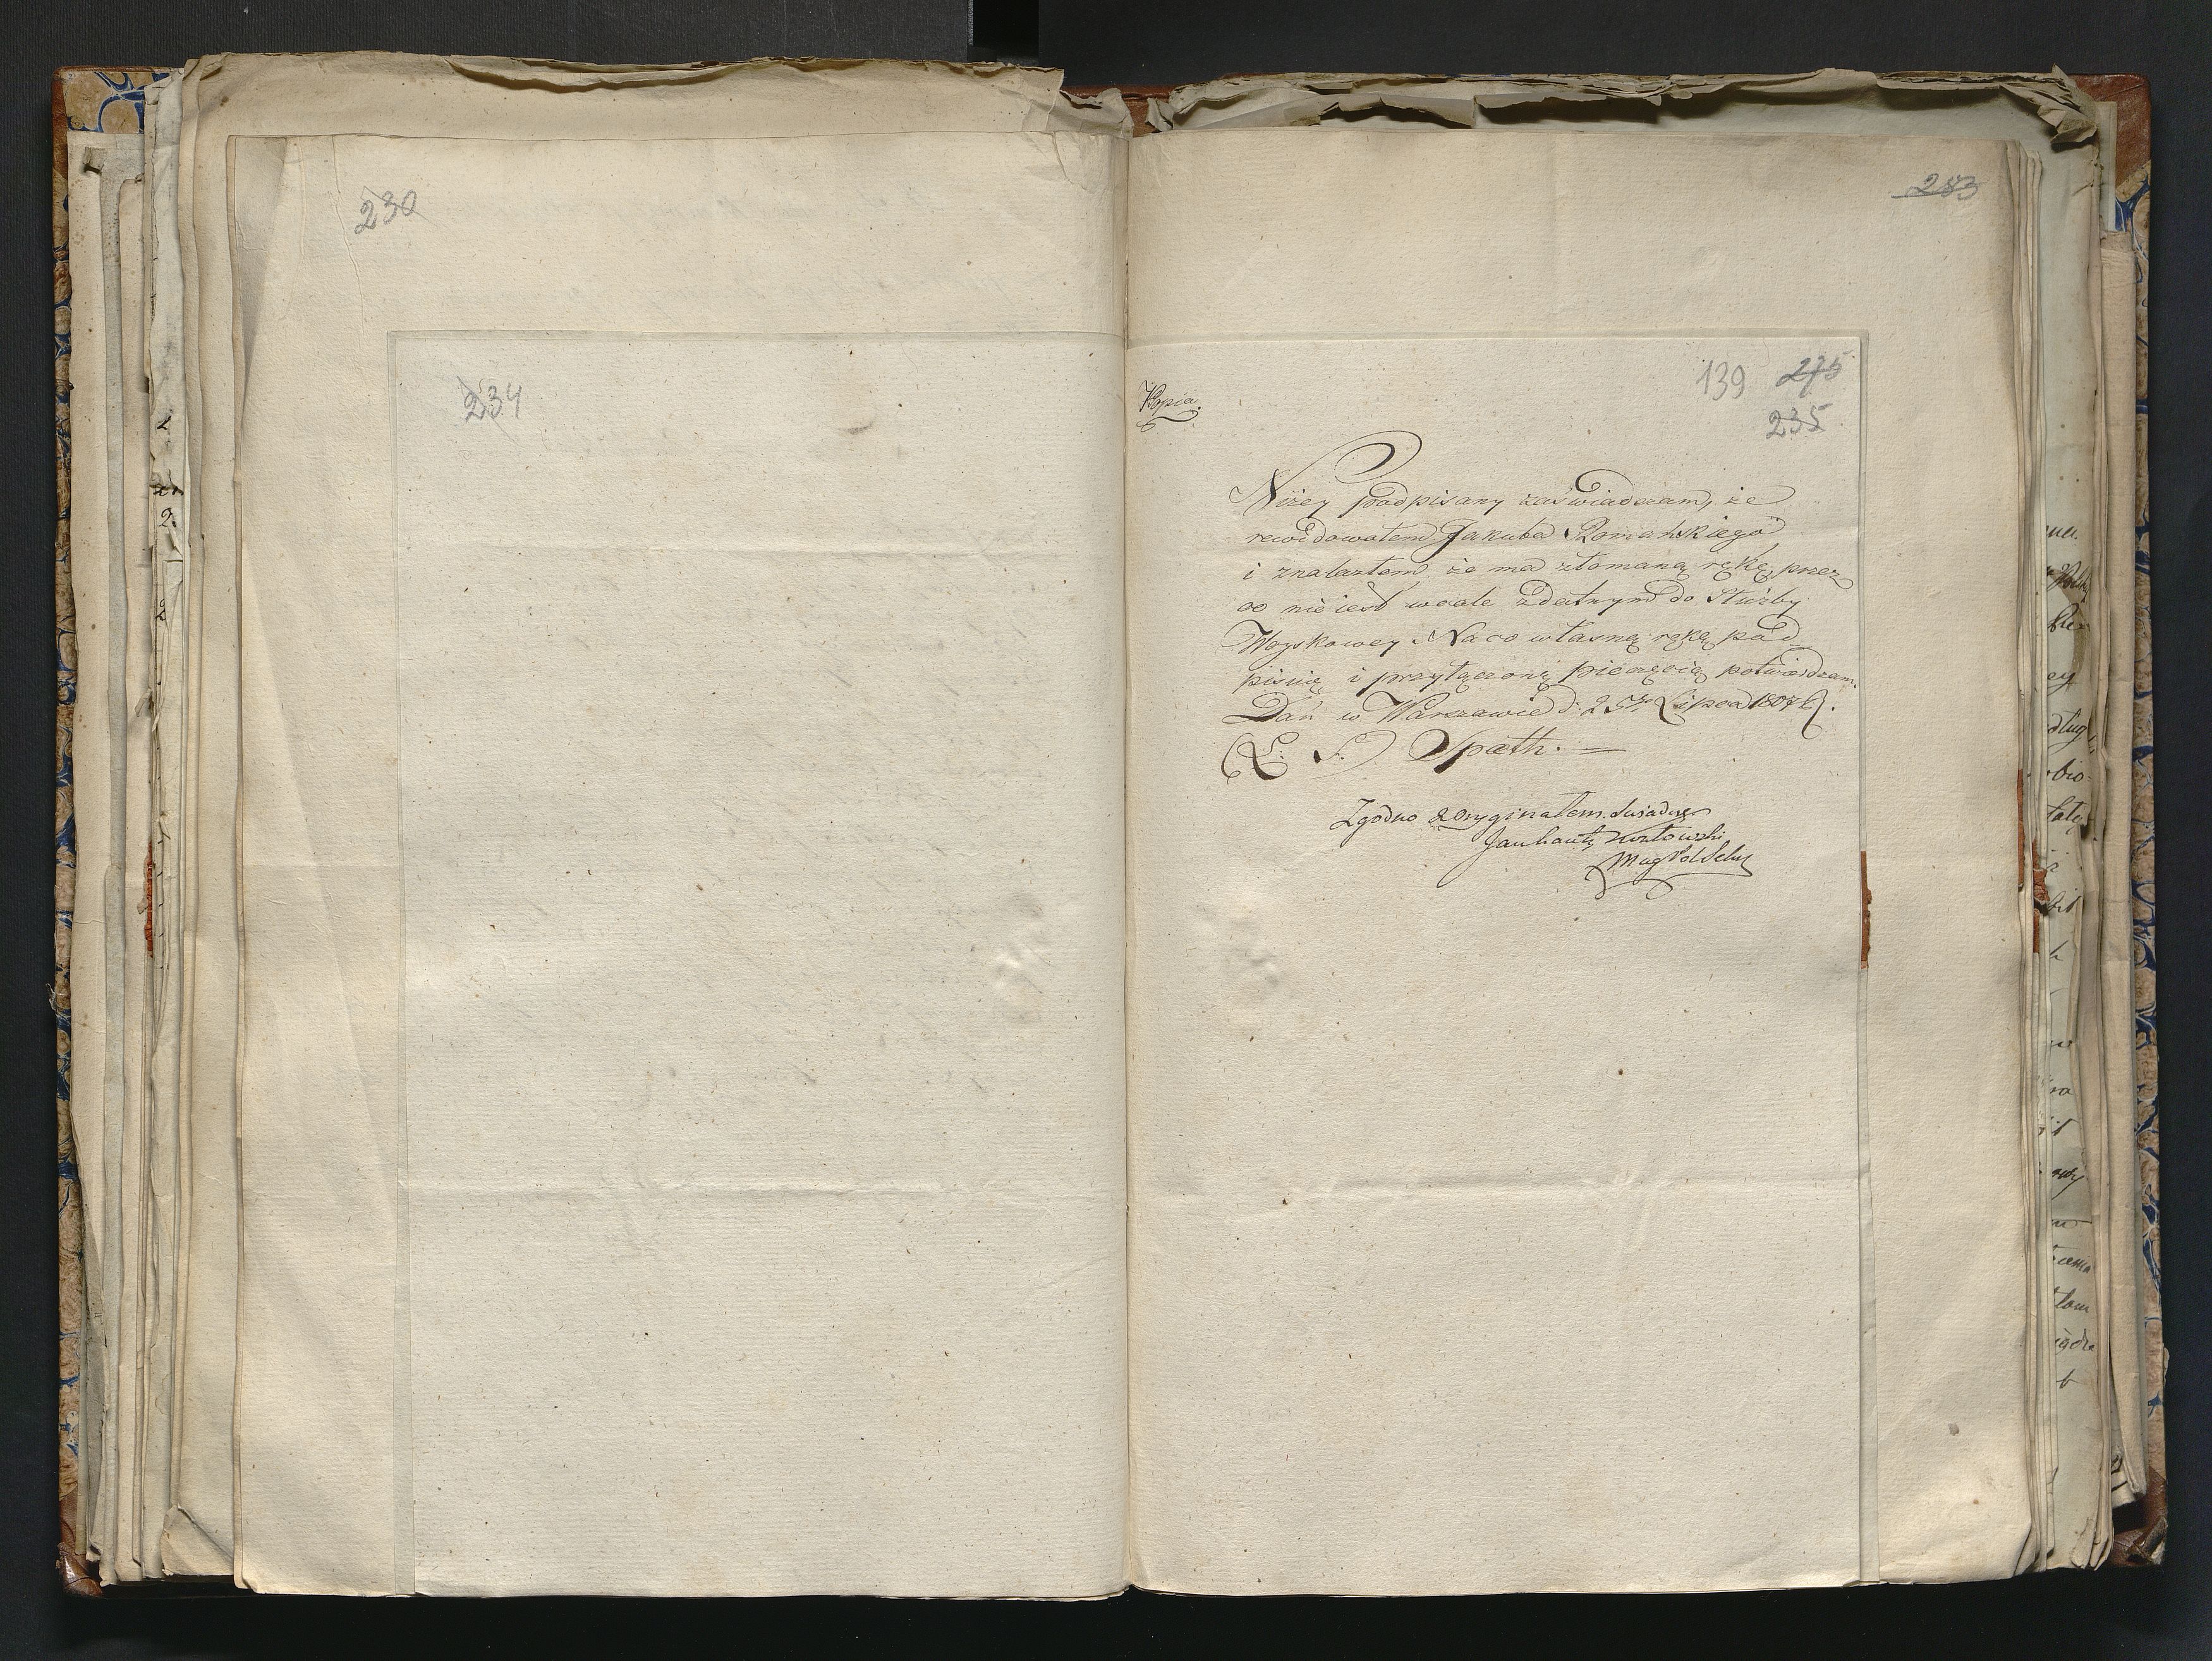 230
234
283
139 275
235
Kopia.
Niżey podpisany zaświadczam, że
rewidowałem Jakuba Romańskiego
i znalazłem że ma złomaną rękę, przez
co nie iest wcale zdatnym do Służby
Woyskowey. Na co własną ręką pod
pisuię i przyłączoną pieczęcią potwierdzam.
Dań w Warszawie d: 25 Lipca 1807 R.
(L. S.) Spæth.
Zgodno z Oryginałem Swiadczę
Kozłowski